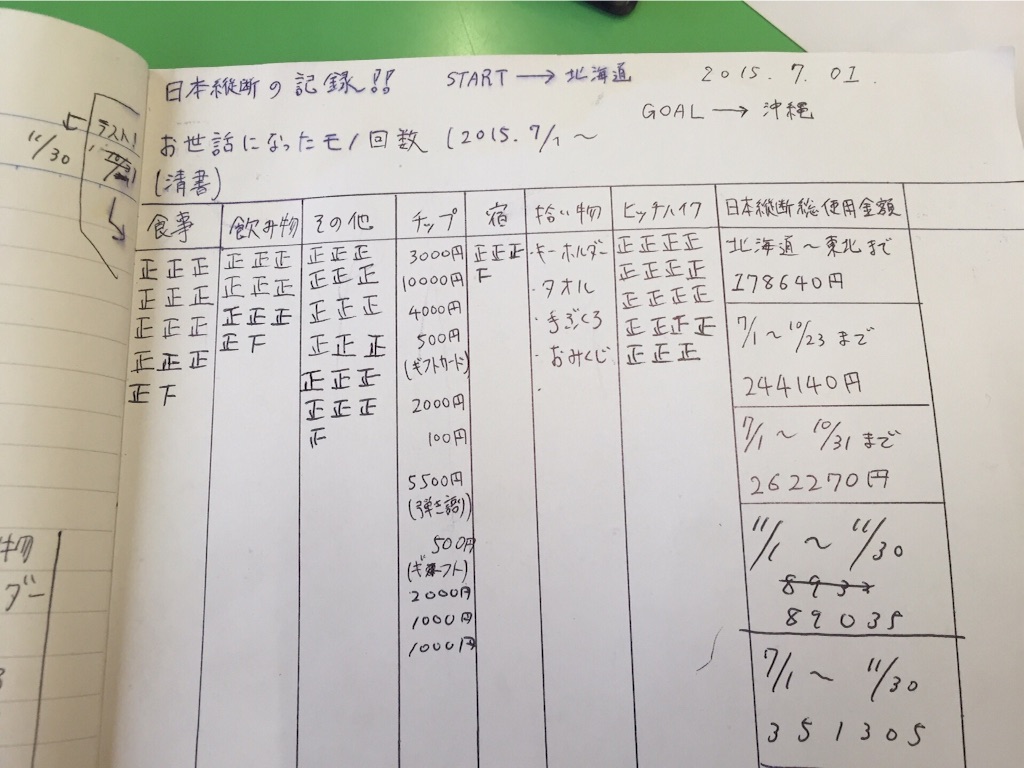 日本縦断の記録!! START → 北海道 2015. 7. 01.
GOAL → 沖縄
お世話になったモノ回数 (2015. 7/1 ~
(清書)
11/30
テスト!
食事
正正正
正正正
正正正
正正正
正下
飲み物
正正正
正正正
正正正
正下
その他
正正正
正正正
正正正
正正正
正正正
正正正
チップ
3000円
10000円
4000円
500円
(ギフトカード)
2000円
100円
5500円
(弾き語り)
500円
2000円
1000円
1000円
宿
正正正
下
拾い物
・キーホルダー
・タオル
・手ぶくろ
・おみくじ
・
ヒッチハイク
正正正正
正正正正
正正正正
正正正正
正正正
日本縦断総使用金額
北海道~東北まで
178640円
7/1 ~ 10/23 まで
244140円
7/1 ~ 10/31 まで
262270円
11/1 ~ 11/30
89035
7/1 ~ 11/30
351305
物
ダー